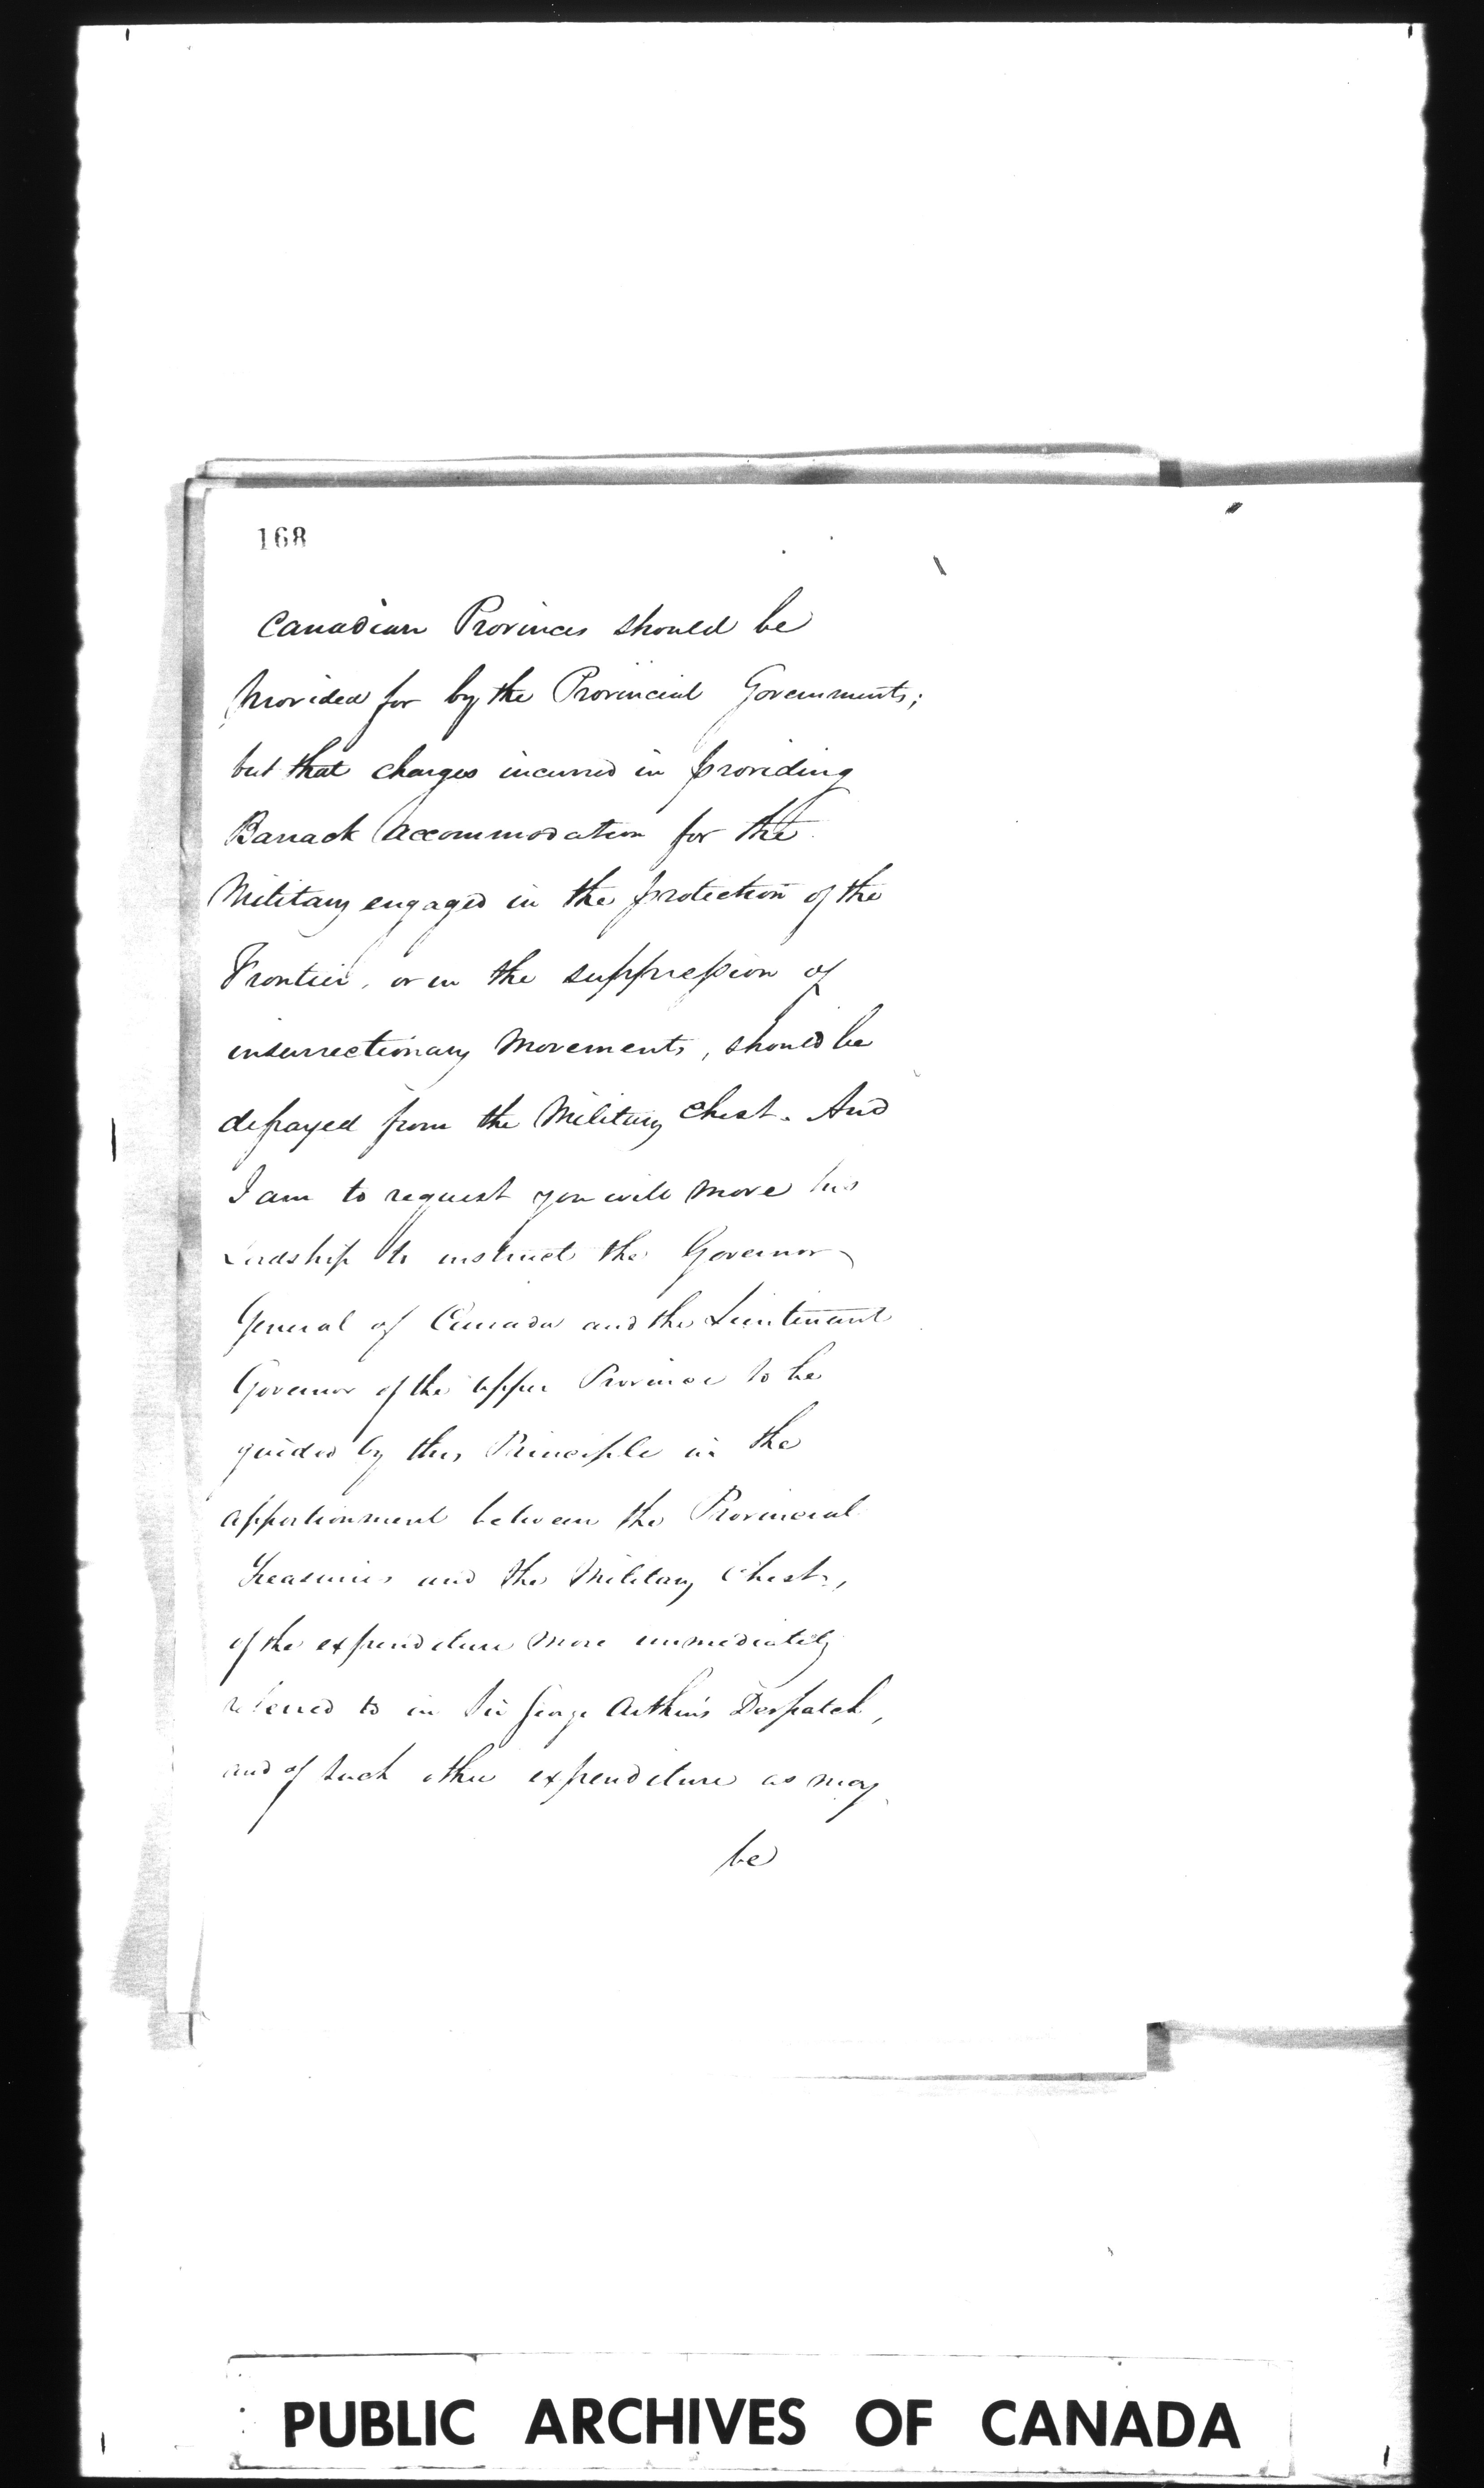 168
Canadian Provinces should be
provided for by the Provincial Governments;
but that charges incurred in providing
Barrack Accommodation for the
Military engaged in the protection of the
Frontier, or in the suppression of
insurrectionary movements, should be
defrayed from the Military Chest. And
I am to request you will move his
Lordship to instruct the Governor
General of Canada and the Lieutenant
Governor of the Upper Province to be
guided by this Principle in the
apportionment between the Provincial
Treasuries and the Military Chest,
of the expenditure more immediately
referred to in Sir George Arthur's Despatch,
and of such other expenditure as may
be
PUBLIC ARCHIVES OF CANADA